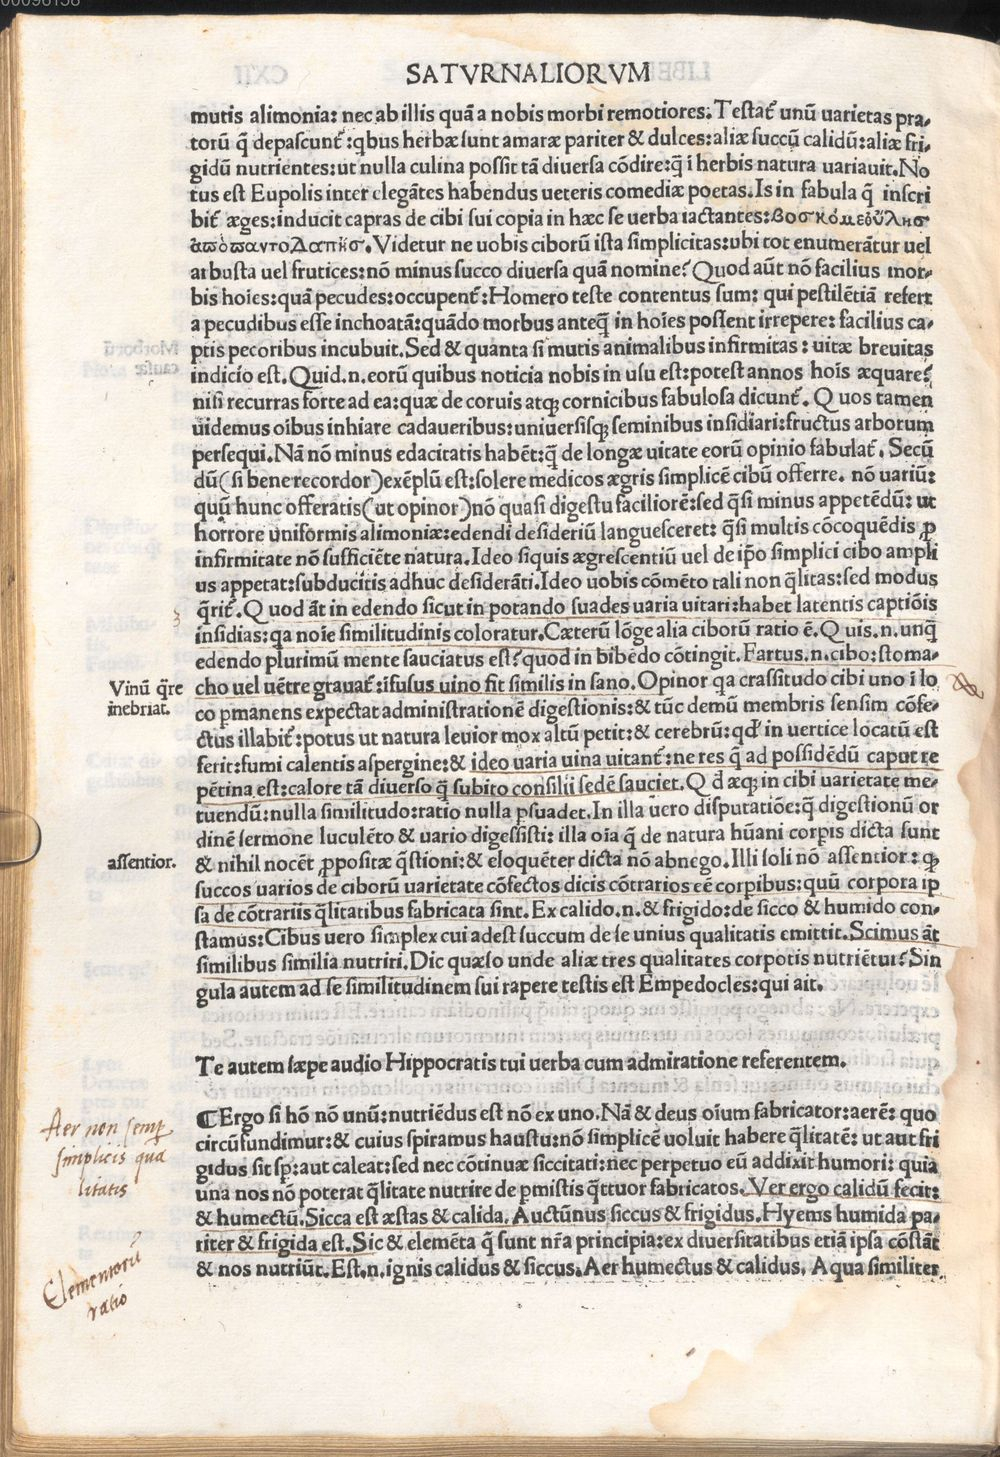 SATVRNALIORVM
mutis alimonia: nec ab illis quā a nobis morbi remotiores. Testat᷑ unū uarietas pra-
torū q̄ depascunt᷑: qbus herbæ sunt amaræ pariter & dulces: aliæ succū calidū: aliæ fri-
gidū nutrientes: ut nulla culina possit tā diuersa cōdire: q̄ i herbis natura uariauit. No
tus est Eupolis inter elegātes habendus ueteris comediæ poetas. Is in fabula q̄ inscri
bit᷑ æges: inducit capras de cibi sui copia in hæc se uerba iactantes:
Videtur ne uobis ciborū ista simplicitas: ubi tot enumerātur uel
arbusta uel frutices: nō minus succo diuersa quā nomine? Quod aūt nō facilius mor-
bis hoīes: quā pecudes: occupent᷑: Homero teste contentus sum: qui pestilētiā refert
a pecudibus esse inchoatā: quādo morbus anteq̄ in hoīes possent irrepere: facilius ca-
ptis pecoribus incubuit. Sed & quanta si mutis animalibus infirmitas: uitæ breuitas
indicio est. Quid .n. eorū quibus noticia nobis in usu est: potest annos hoīs æquare?
nisi recurras forte ad ea: quæ de coruis atqꝫ cornicibus fabulosa dicunt᷑. Quos tamen
uidemus oībus inhiare cadaueribus: uniuersisqꝫ seminibus insidiari: fructus arborum
persequi. Nā nō minus edacitatis habēt: q̄ de longæ uitate eorū opinio fabulat᷑. Secū
dū (si bene recordor) exēplū est: solere medicos ægris simplicē cibū offerre. nō uariū:
quū hunc offeratis (ut opinor) nō quasi digestu faciliorē: sed q̄si minus appetēdū: ut
horrore uniformis alimoniæ: edendi desideriū languesceret: q̄si multis cōcoquēdis ꝓ
infirmitate nō sufficiēte natura. Ideo siquis ægrescentiū uel de ip̄o simplici cibo ampli
us appetat: subducitis adhuc desiderāti. Ideo uobis cōmēto tali non q̄litas: sed modus
q̄rit᷑. Quod āt in edendo sicut in potando suades uaria uitari: habet latentis captiōis
insidias: qa noīe similitudinis coloratur. Cæterū lōge alia ciborū ratio ē. Quis .n. unq̄
edendo plurimū mente sauciatus est? quod in bibēdo cōtingit. Fartus .n. cibo: stoma-
Vinū q̄re
inebriat.
cho uel uētre grauat᷑: ifusus uino fit similis in sano. Opinor qa crassitudo cibi uno i lo
co ꝑmanens expectat administrationē digestionis: & tūc demū membris sensim cōfe-
ctus illabit᷑: potus ut natura leuior mox altū petit: & cerebrū: qd̄ in uertice locatū est
ferit: fumi calentis aspergine: & ideo uaria uina uitant᷑: ne res q̄ ad possidēdū caput re
pētina est: calore tā diuerso q̄ subito consilii sedē sauciet. Qd̄ æqꝫ in cibi uarietate me-
tuendū: nulla similitudo: ratio nulla ꝑsuadet. In illa uero disputatiōe: q̄ digestionū or
dinē sermone luculēto & uario digessisti: illa oīa q̄ de natura hūani corꝑis dicta sunt
assentior.
& nihil nocēt ꝓpositæ q̄stioni: & eloquēter dicta nō abnego. Illi soli nō assentior: qꝫ
succos uarios de ciborū uarietate cōfectos dicis cōtrarios eē corꝑibus: quū corpora ip
sa de cōtrariis q̄litatibus fabricata sint. Ex calido .n. & frigido: de sicco & humido con-
stamus: Cibus uero simplex cui adest succum de se unius qualitatis emittit. Scimus āt
similibus similia nutriri. Dic quæso unde aliæ tres qualitates corporis nutriētur? Sin
gula autem ad se similitudinem sui rapere testis est Empedocles: qui ait.
Te autem sæpe audio Hippocratis tui uerba cum admiratione referentem.
Aer non semꝑ
simplicis qua
litatis
⸿Ergo si hō nō unū: nutriēdus est nō ex uno. Nā & deus oīum fabricator: aerē: quo
circūfundimur: & cuius spiramus haustu: nō simplicē uoluit habere q̄litatē: ut aut fri
gidus sit sꝑ: aut caleat: sed nec cōtinuæ siccitati: nec perpetuo eū addixit humori: quia
una nos nō poterat q̄litate nutrire de ꝑmistis q̄ttuor fabricatos. Ver ergo calidū fecit:
& humectū. Sicca est æstas & calida. Auctūnus siccus & frigidus. Hyems humida pa-
riter & frigida est. Sic & elemēta q̄ sunt nr̄a principia: ex diuersitatibus etiā ipsa cōstāt
& nos nutriūt. Est .n. ignis calidus & siccus. Aer humectus & calidus. Aqua similiter
Elementorū
ratio